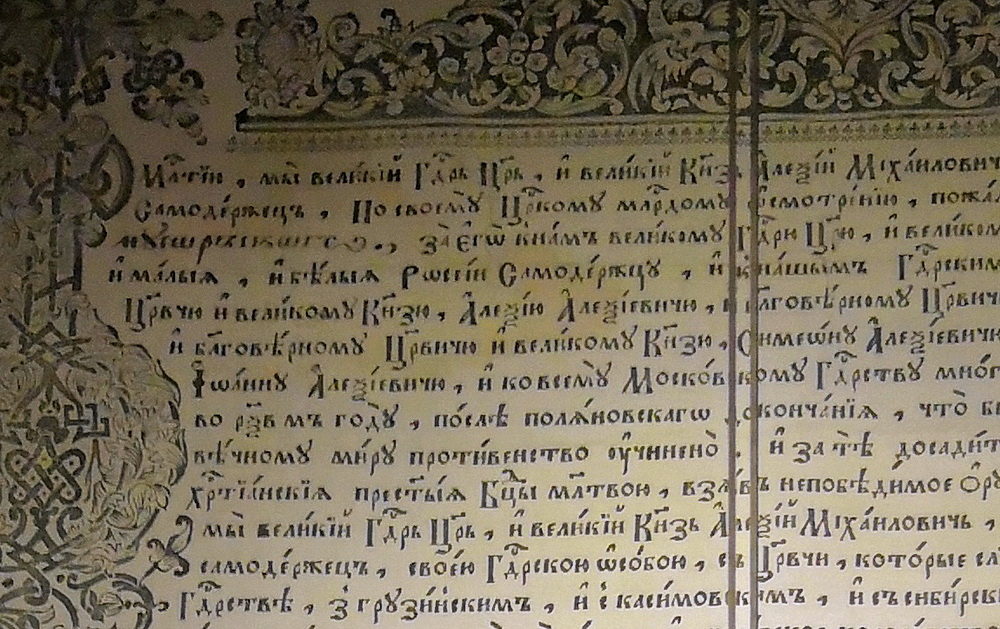 млⷭ҇тїю , мы̀ вели́кїй Гдⷭ҇рь Црⷭ҇ь , и҆ вели́кїй Кн҃зь А҆леѯі́й Міха́иловичь
Самоде́ржецъ , По своемꙋ̀ Црⷭ҇комꙋ млⷭ҇рдомꙋ ѡсмотре́нїю , пожа
за̀ є҆гѡ̀ к на́мъ великомꙋ Гдⷭ҇рю Црⷭ҇ю , и҆ великом
и҆ ма́лыѧ , и҆ бѣ́лыѧ Рѡсїи Самоде́ржцꙋ , и҆ к на́шымъ Гдⷭ҇рским
Црⷭ҇вчю и҆ великомꙋ Кн҃зю , А҆леѯі́ю А҆леѯі́евичю , и҆ бл҃говѣ́рномꙋ Црⷭ҇вич
и҆ бл҃говѣ́рномꙋ Црⷭ҇вичю и҆ великомꙋ Кн҃зю , Симеѡ́нꙋ А҆леѯі́евичю
І҆ѡа́ннꙋ А҆леѯі́евичю , и҆ ко всемꙋ̀ Моско́вскомꙋ Гдⷭ҇рствꙋ мног
во рѯ҃в мъ годꙋ̀ , по́слѣ полѧ́новскагѡ докончанїѧ , что̀ б
вѣ́чномꙋ ми́рꙋ проти́венство ᲂу҆чинено̀ . и҆ за тѣ̀ досади́т
хрⷭ҇тїа́нскїѧ прест҃ы́ѧ Бц҃ы мл҃твою , взѧ́въ непобѣди́мое ѻ҆рꙋ
мы̀ вели́кїй Гдⷭ҇рь Црⷭ҇ь , и҆ вели́кїй Кн҃зь А҆леѯі́й Міха́иловичь ,
самоде́ржецъ , свое́ю Гдⷭ҇рскою ѡ҆со́бою , съ Црⷭ҇вчи , кото́рые сл
Гдⷭ҇рствѣ , з̾ грꙋзи́нскимъ , и҆ с̾ каси́мовскимъ , и҆ съ сиби́рск